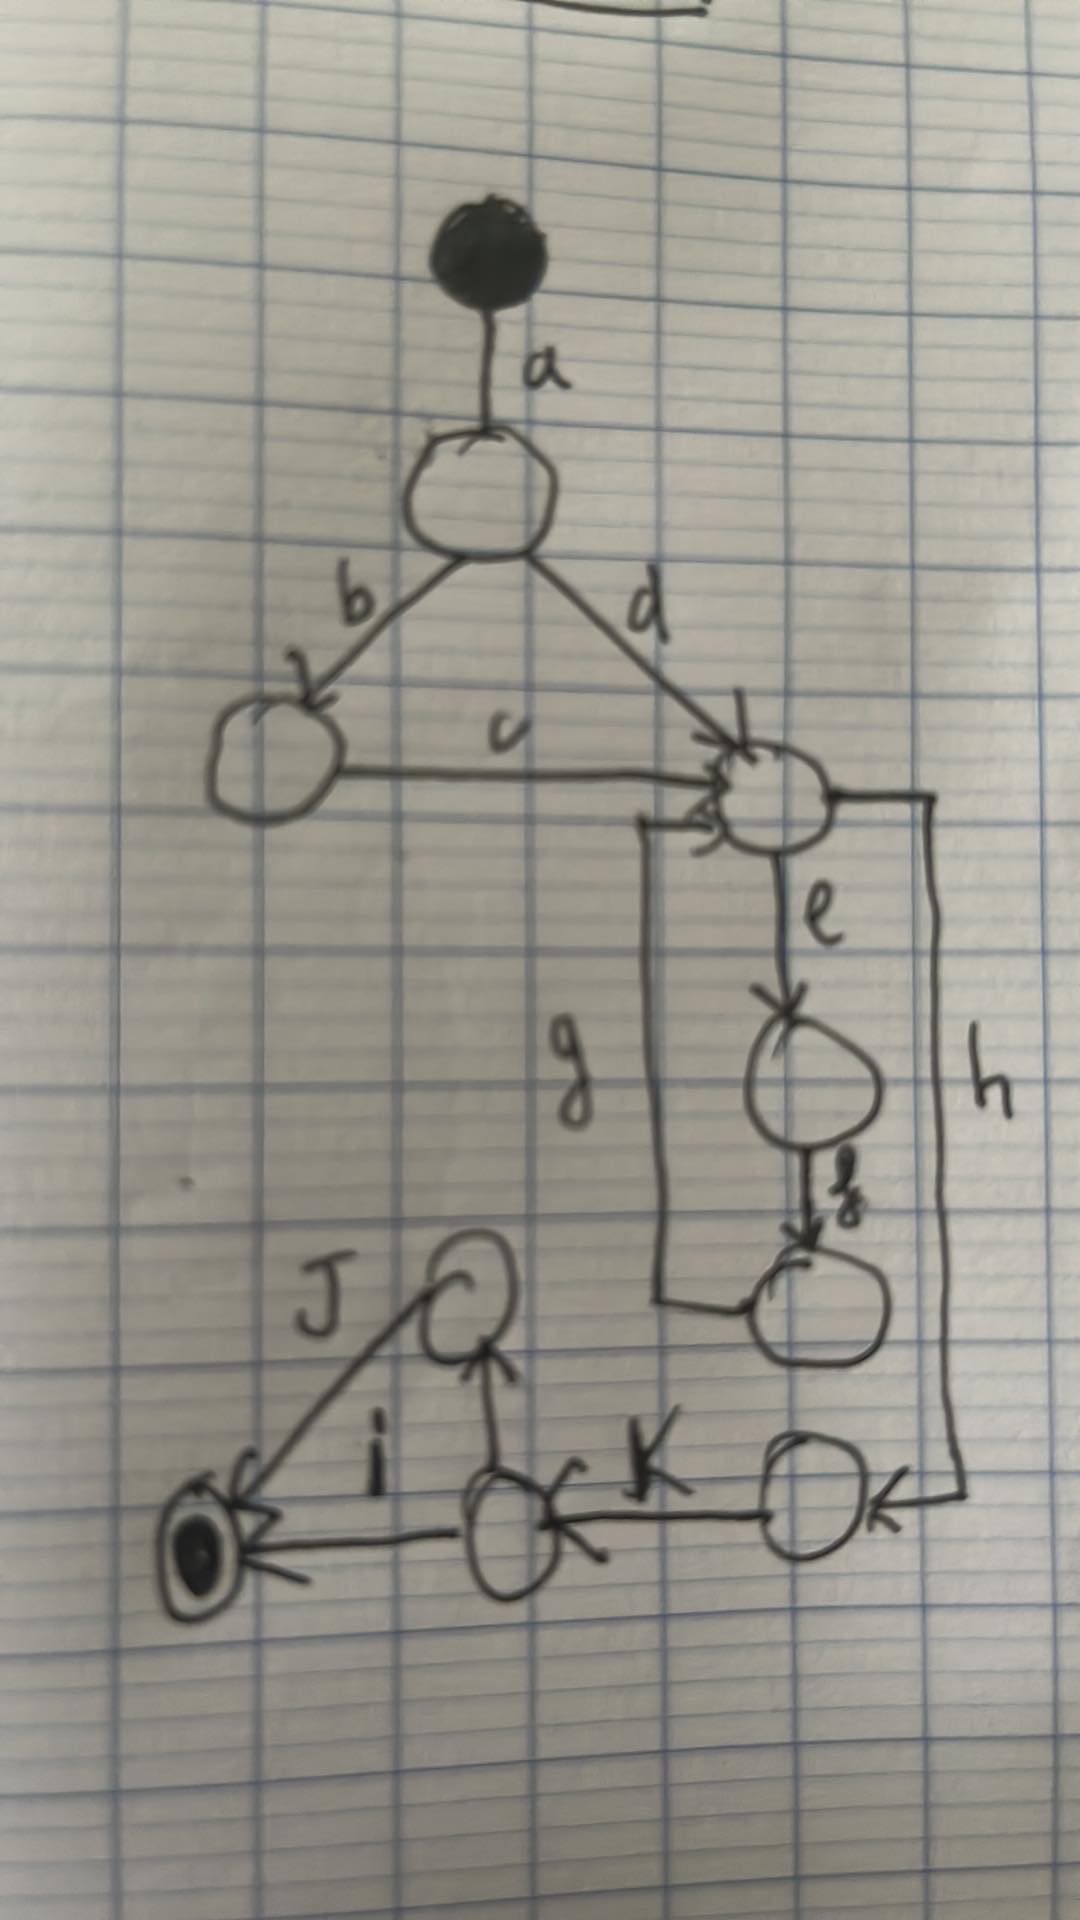 a
b d
c
e
g h
f
J
i K